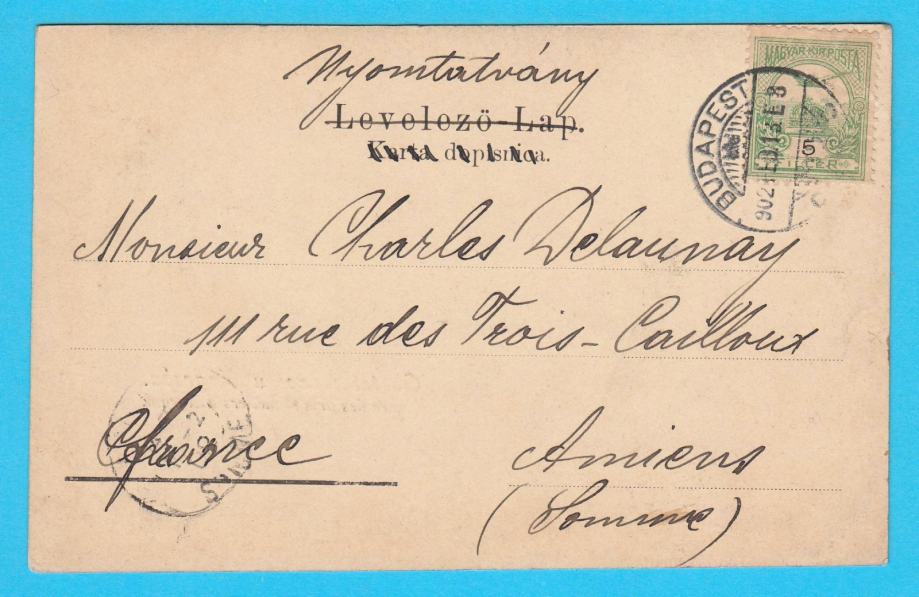 Nyomtatvány
Levelező-Lap.
Karta dopisnica.
MAGYAR KIR POSTA
5
FILLÉR
BUDAPEST
Monsieur Charles Delaunay
111 rue des Trois-Cailloux
France
Amiens
(Somme)